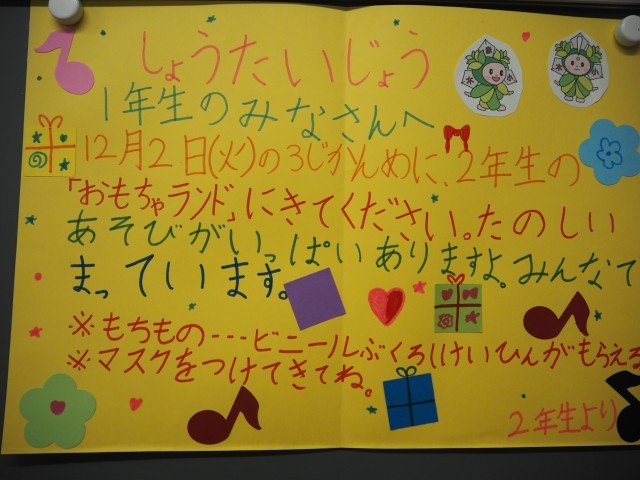 しょうたいじょう
1年生のみなさんへ
12月2日(火)の3じかんめに、2年生の
「おもちゃランド」にきてください。たのしい
あそびがいっぱいありますよ。みんなで
まっています。
※もちもの…ビニールぶくろ(けいひんがもらえる
※マスクをつけてきてね。
2年生より